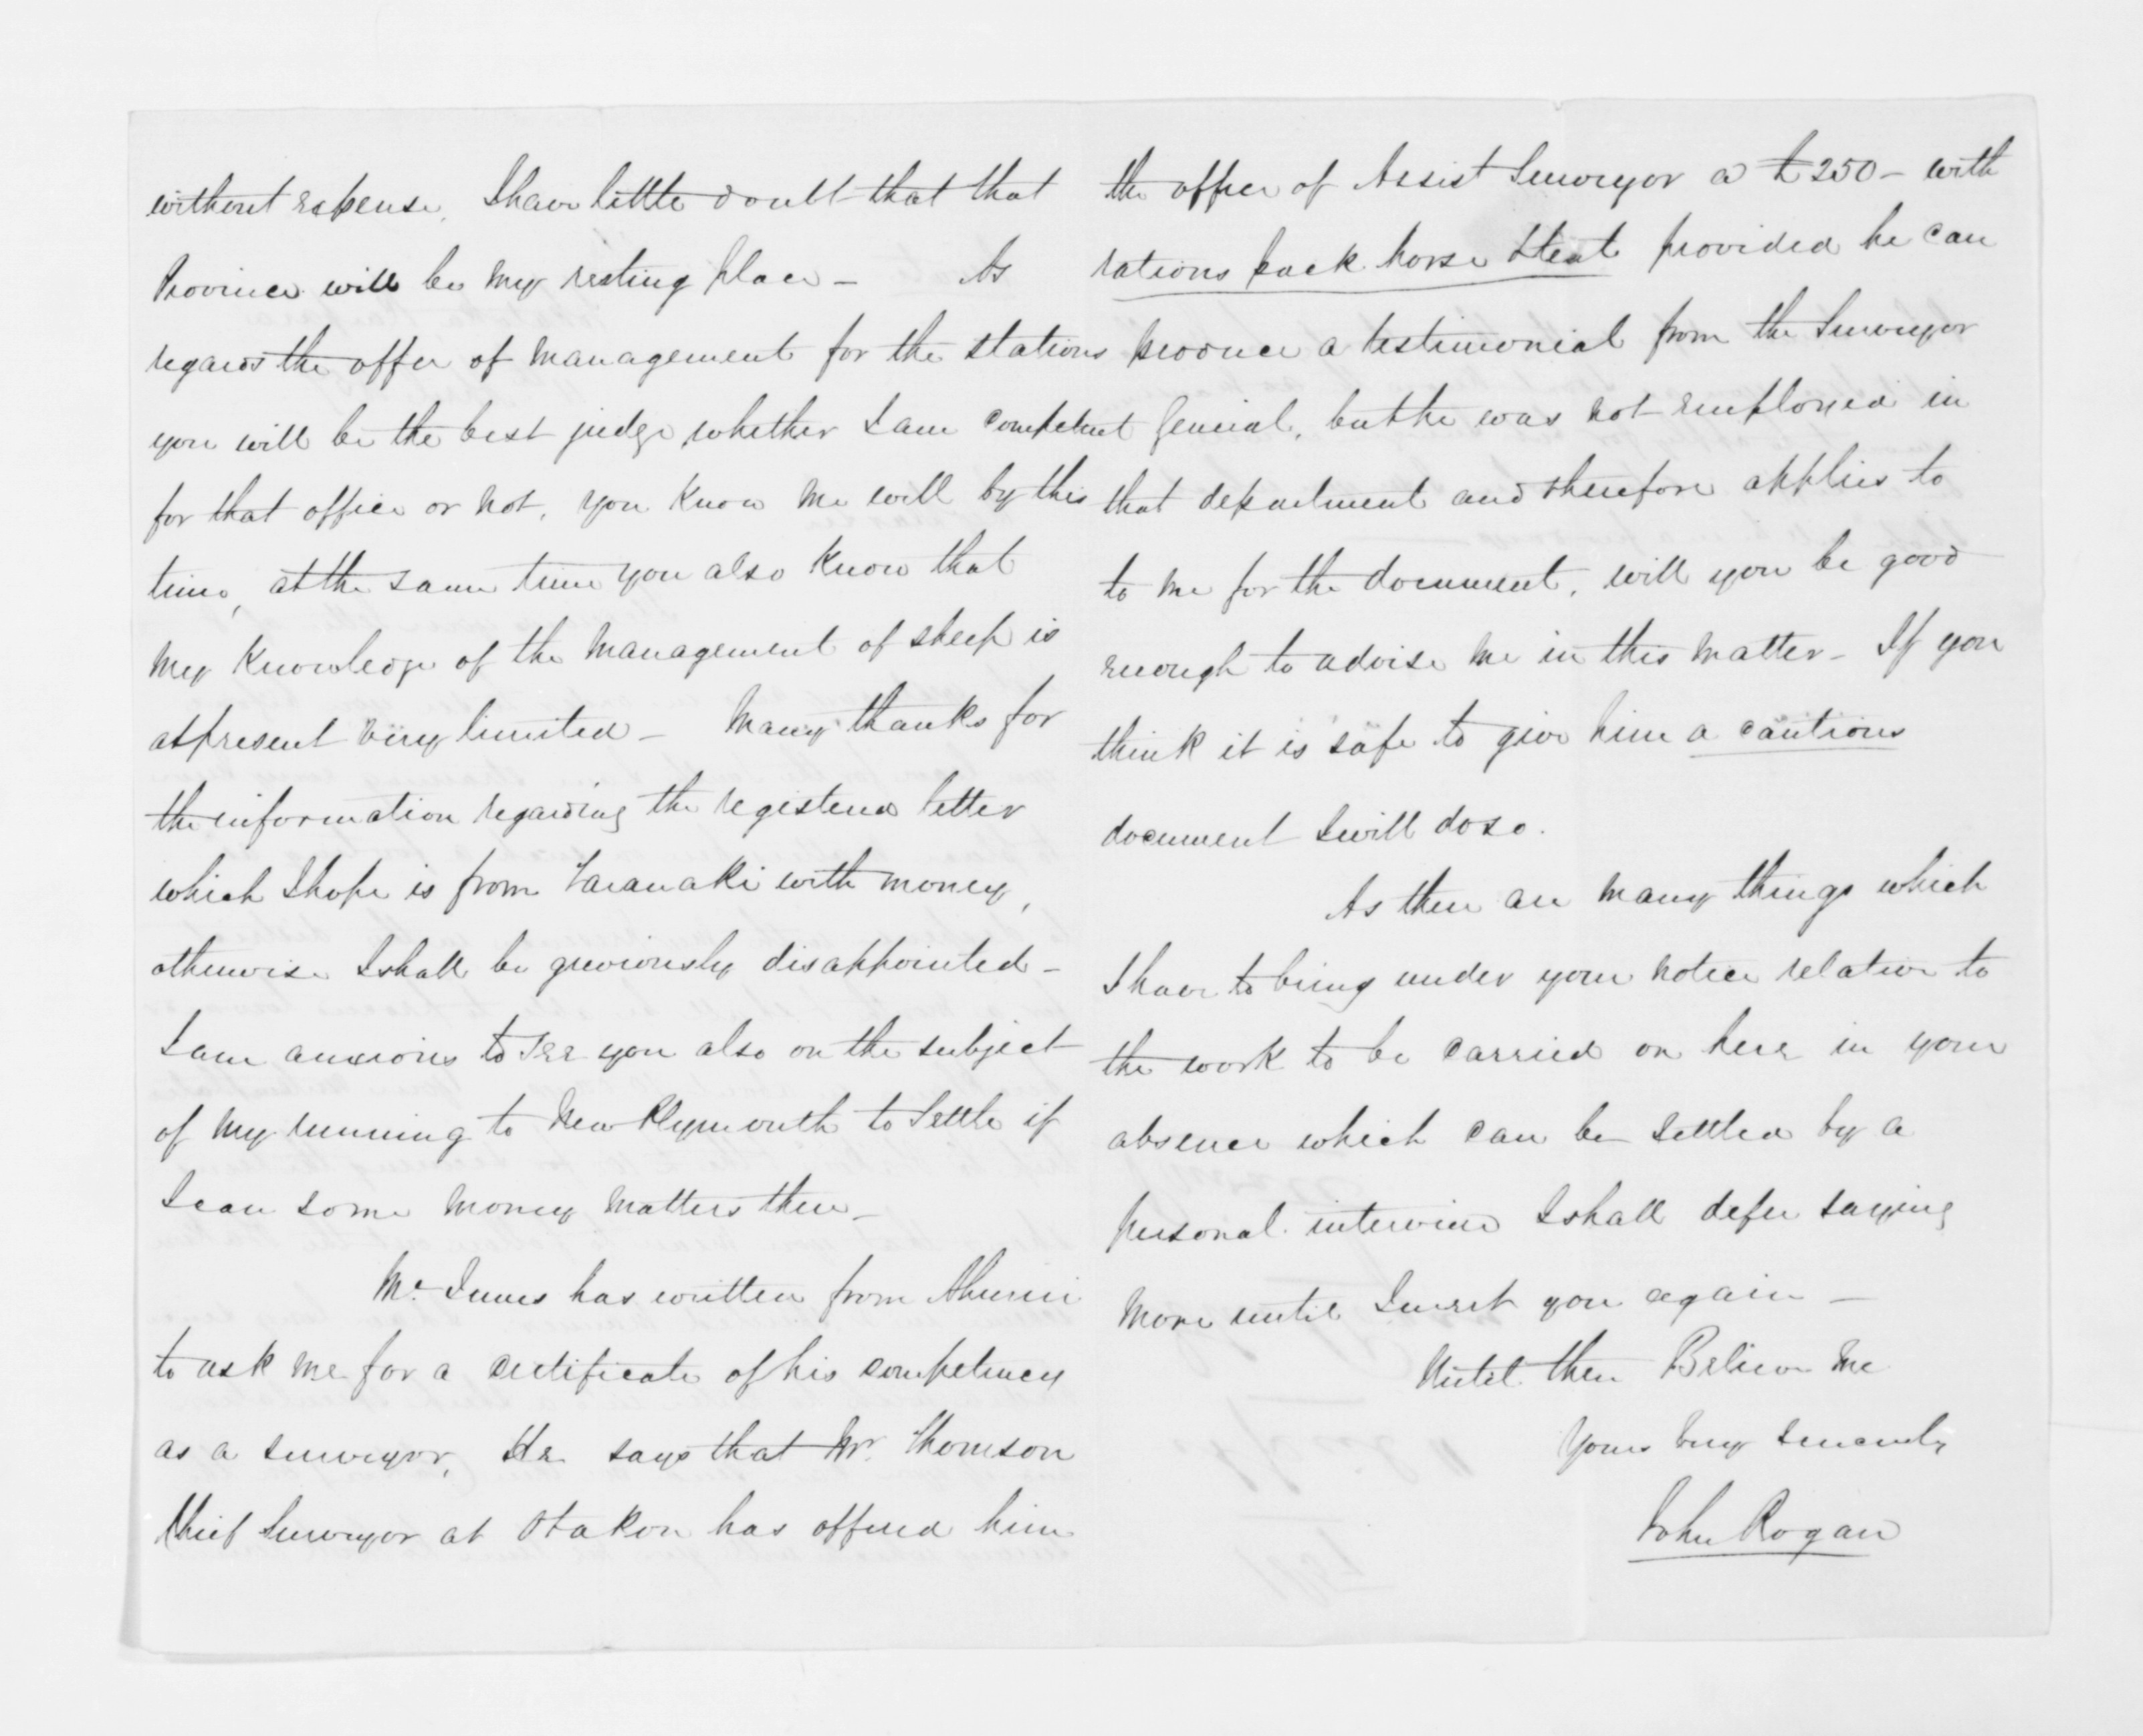 without expense. I have little doubt that that
Province will be my resting place – As
regards the offer of management for the stations
you will be the best judge, whether I am competent
for that office or not, you know me well by this
time, at the same time you also know that
my knowledge of the management of sheep is
at present very limited – Many thanks for
the information regarding the registered letter
which I hope is from Taranaki with money,
otherwise I shall be grieviously disappointed –
I am anxious to see you also on the subject
of my running to New Plymouth to settle if
I can some money matters there –
Mr. Innes has written from Ahuriri
to ask me for a certificate of his competency
as a surveyor, He says that Mr. Thomson
Chief Surveyor at Otakou has offered him
the office of Assist Surveyor a £250 – with
rations pack horse & tent provided he can
produce a testimonial from the Surveyor
General, but he was not employed in
that department and therefore applies to
to me for the document, will you be good
enough to advise me in this matter – If you
think it is safe to give him a cautious
document I will do so.
As there are many things which
I have to bring under your notice relative to
the work to be carried on here in your
absence which can be settled by a
personal interview I shall defer saying
more until I meet you again –
Until then Believe me
Yours very sincerely
John Rogan